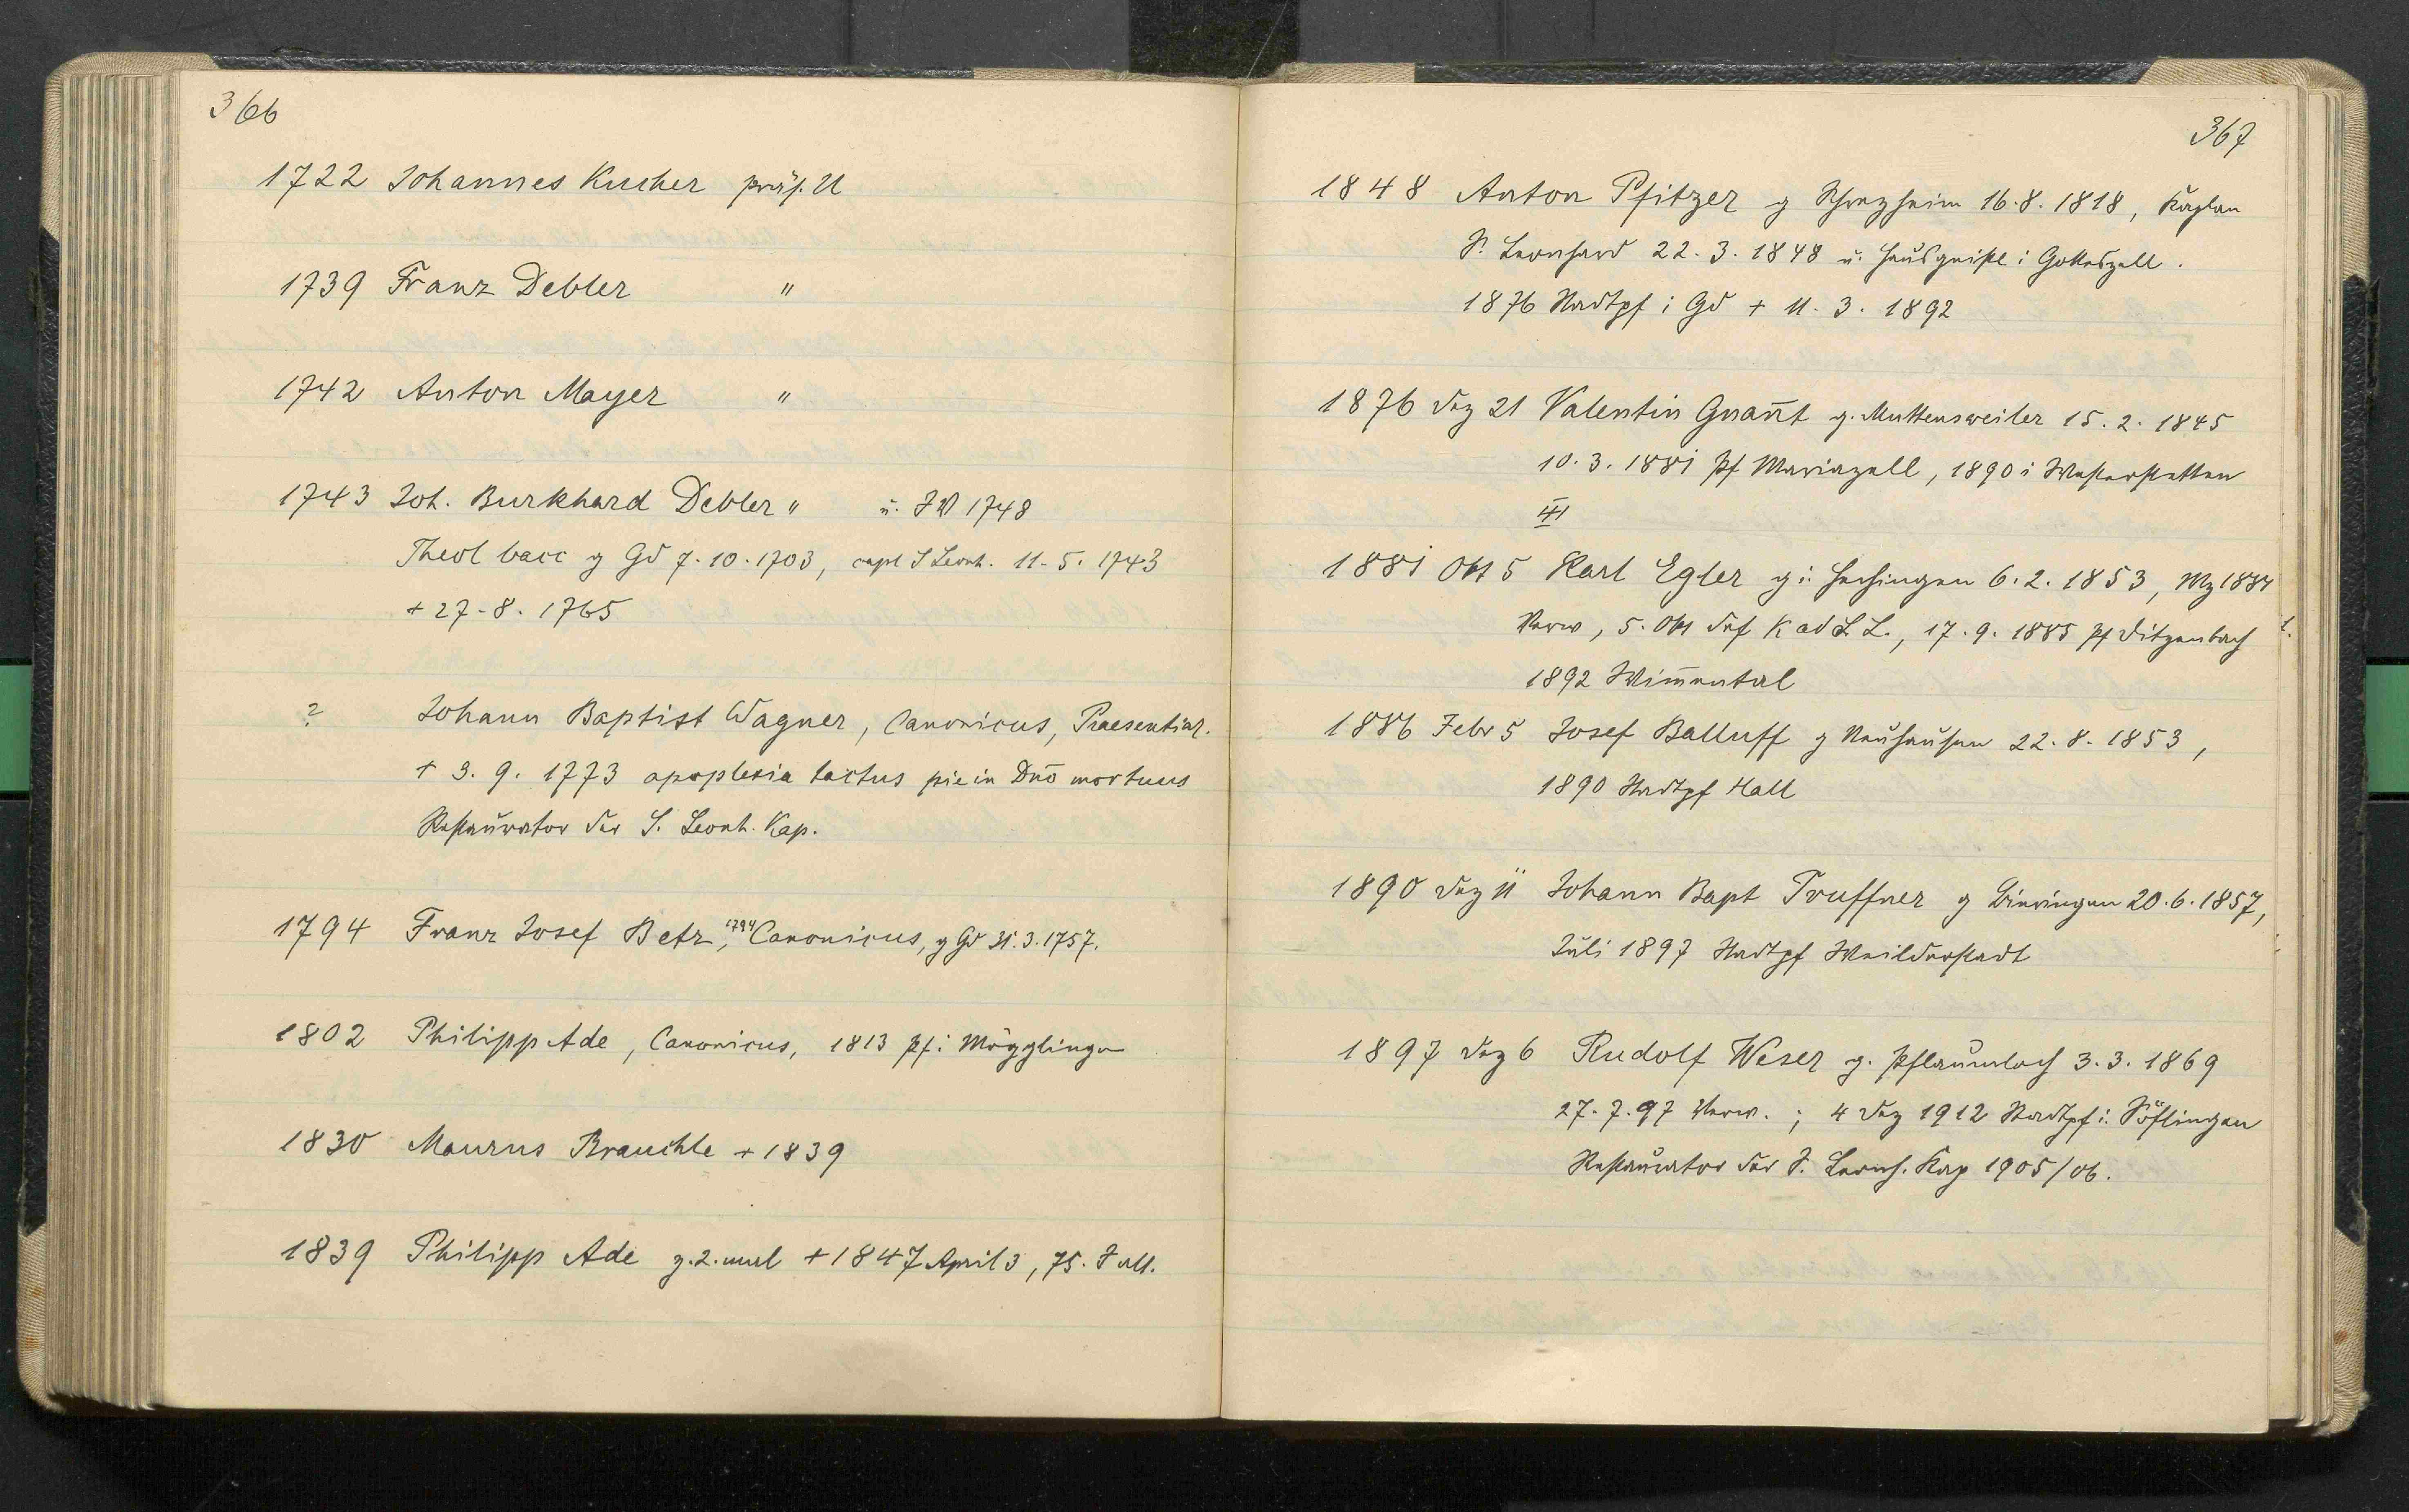 366
1722 Johannes Kucher präs. U
1739 Franz Debler "
1742 Anton Mayer "
1743 Joh. Burkhard Debler " u. JW 1748
Theol bacc g Gd 7.10.1703, capl S Leonh. 11.5.1743
+ 27.8.1765
? Johann Baptist Wagner, Canonicus, Praesentiar.
+ 3.9.1773 apoplexia tactus pie in Dn̄o mortuus
Restaurator der S. Leonh. Kap.
1794 Franz Josef Betz, 1794 Canonicus, g Gd 31.3.1757.
1802 Philipp Ade, Canonicus, 1813 Pf i Mögglingen
1830 Maurus Brauchle + 1839
1839 Philipp Ade z. 2. mal + 1847 April 3, 75. J alt.
367
1848 Anton Pfitzer g Schrezheim 16.8.1818, Kaplan
S. Leonhard 22.3.1848 u. Hausgeistl i Gotteszell.
1876 Stadtpf i Gd + 11.3.1892
1876 Dez 21 Valentin Gnan̄t g. Muttensweiler 15.2.1845
10.3.1881 Pf Mariazell, 1890 i Westerstetten
1881 Okt 5 Karl Egler g i. Hechingen 6.2.1853, Mz 1881
Verw, 5. Okt def K ad S L., 17.9.1885 Pf Ditzenbach
1892 Wim̄ental
1886 Febr 5 Josef Balluff g Neuhausen 22.8.1853,
1890 Stadtpf Hall
1890 Dez 11 Johann Bapt Truffner g Bieringen 20.6.1857,
Juli 1897 Stadtpf Weilderstadt
1897 Dez 6 Rudolf Weser g. Pflaumloch 3.3.1869
27.7.97 Verw.; 4 Dez 1912 Stadtpf i. Söflingen
Restaurator der S. Leonh. Kap 1905/06.